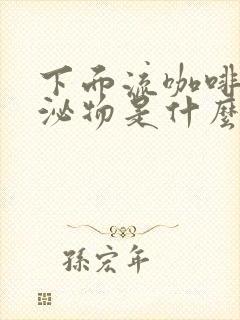 下而流咖啡
泌物是什麼
孫宏年